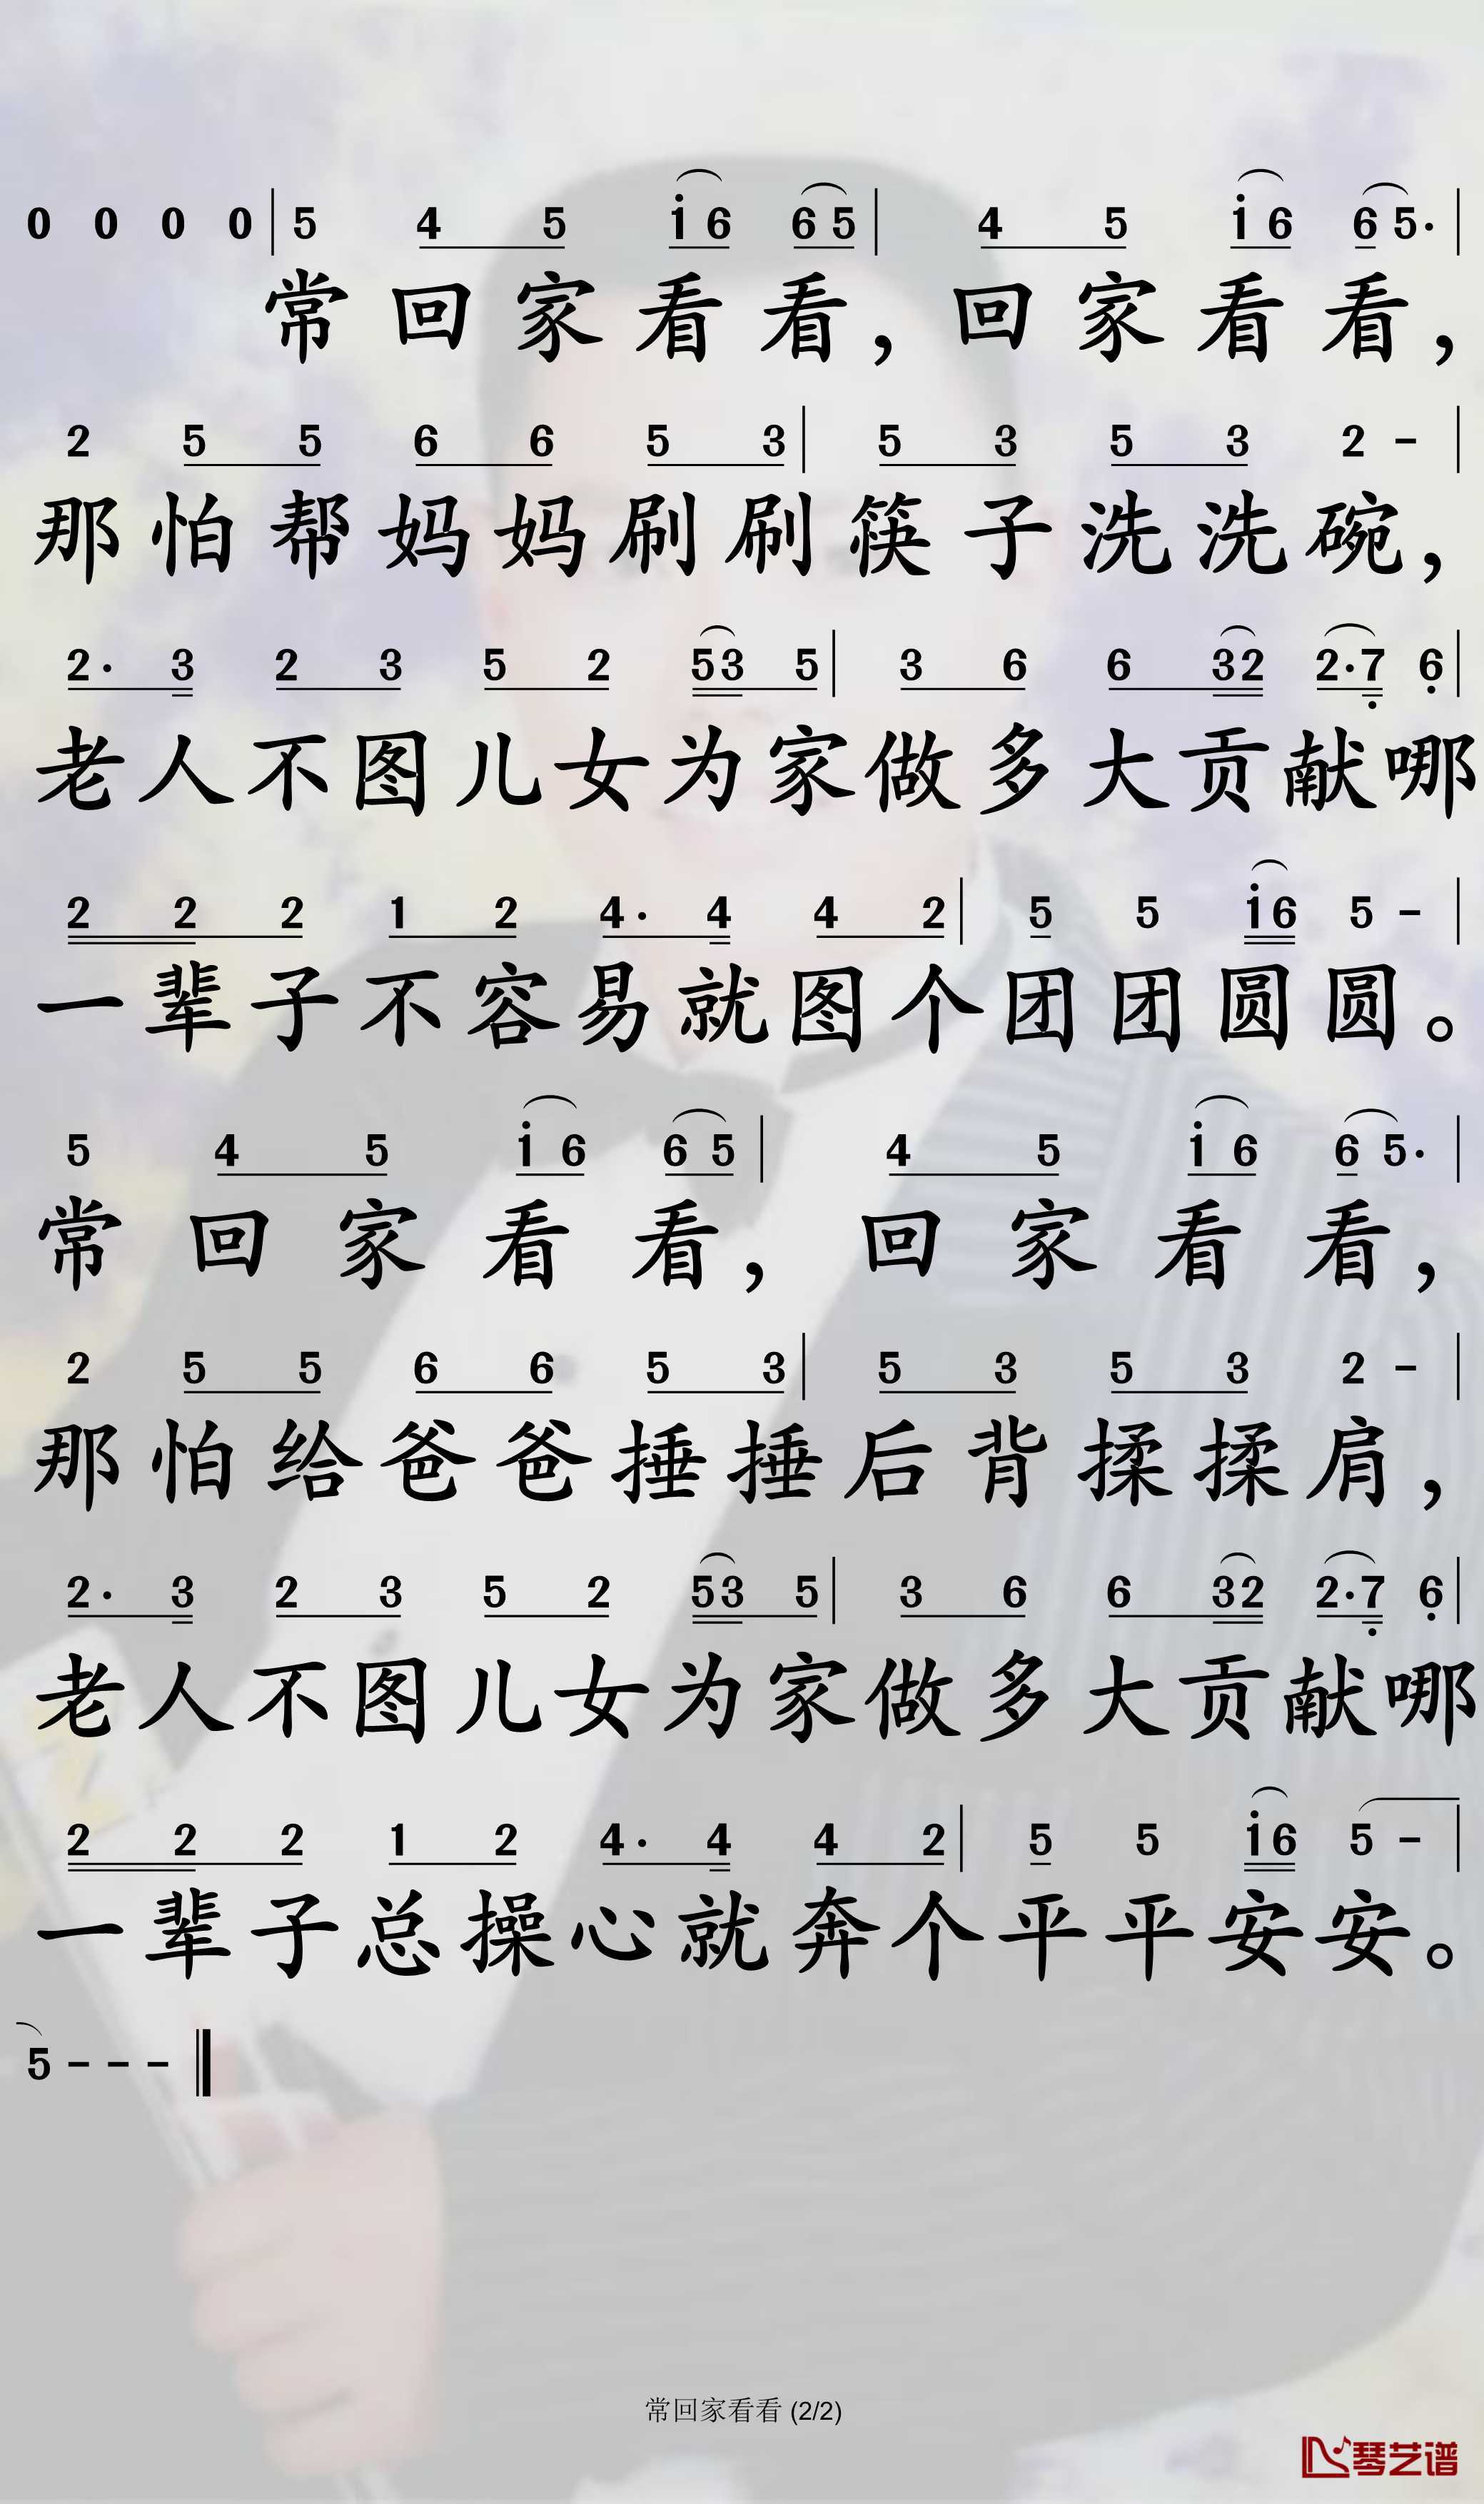 0 0 0 0 | 5 4 5 i 6 6 5 | 4 5 i 6 6 5· |
常回家看看，回家看看，
2 5 5 6 6 5 3 | 5 3 5 3 2 - |
那怕帮妈妈刷刷筷子洗洗碗，
2· 3 2 3 5 2 53 5 | 3 6 6 32 2·7 6 |
老人不图儿女为家做多大贡献哪
2 2 2 1 2 4· 4 4 2 | 5 5 i6 5 - |
一辈子不容易就图个团团圆圆。
5 4 5 i 6 6 5 | 4 5 i 6 6 5· |
常回家看看，回家看看，
2 5 5 6 6 5 3 | 5 3 5 3 2 - |
那怕给爸爸捶捶后背揉揉肩，
2· 3 2 3 5 2 53 5 | 3 6 6 32 2·7 6 |
老人不图儿女为家做多大贡献哪
2 2 2 1 2 4· 4 4 2 | 5 5 i6 5 - |
一辈子总操心就奔个平平安安。
5 - - - ‖
常回家看看 (2/2)
琴艺谱